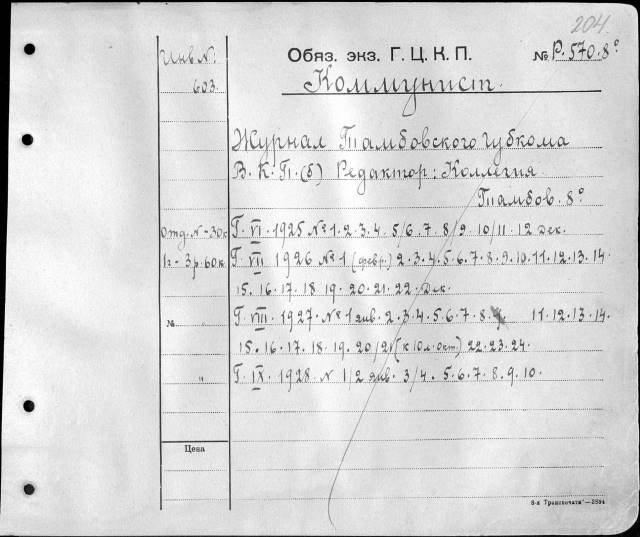 204.
Инв N.
Обяз. экз. Г. Ц. К. П.
№ Р. 570. 8°
603.
Коммунист.
Журнал Тамбовского Губкома
В. К. П. (б) Редактор: Коллегия
Тамбов. 8°
отд. N - 30 к. Г. VI. 1925 № 1. 2. 3. 4. 5/6. 7. 8/9. 10/11. 12 Дек.
1 г - 3 р. 60 к. Г. VII 1926 № 1 (февр.) 2. 3. 4. 5. 6. 7. 8. 9. 10. 11. 12. 13. 14.
15. 16. 17. 18 19. 20. 21. 22. Дек.
№ " Г. VIII. 1927. № 1 янв. 2. 3. 4. 5. 6. 7. 8. 11. 12. 13. 14.
15. 16. 17. 18. 19. 20/21 (к Юл. окт.) 22. 23. 24.
" Г. IX. 1928. N 1/2 янв. 3/4. 5. 6. 7. 8. 9. 10.
Цена
8-я „Транспечати“—3894